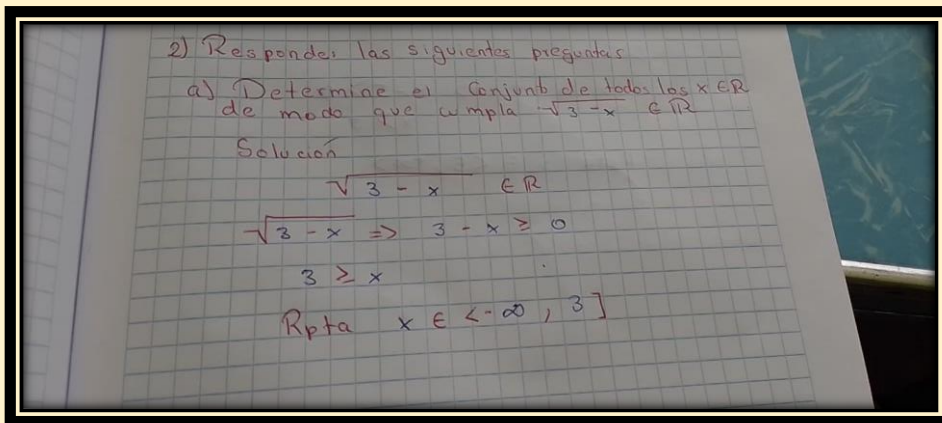 2) Responder las siguientes preguntas
a) Determine el Conjunto de todos los x ∈ R
de modo que cumpla √3-x ∈ R
Solución
√3 - x ∈ R
√3 - x => 3 - x ≥ 0
3 ≥ x
Rpta x ∈ <-∞, 3]